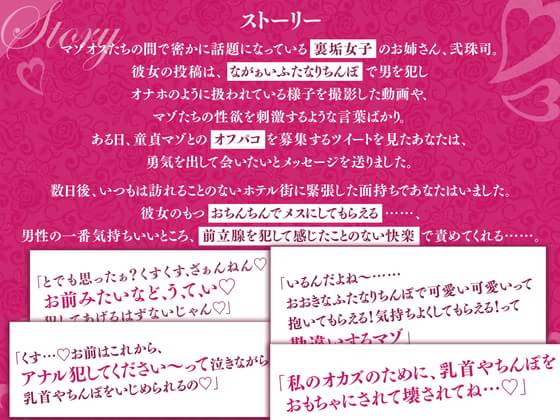 Story
ストーリー
マゾオスたちの間で密かに話題になっている 裏垢女子 のお姉さん、弐珠司。
彼女の投稿は、ながぁいふたなりちんぽ で男を犯し
オナホのように扱われている様子を撮影した動画や、
マゾたちの性欲を刺激するような言葉ばかり。
ある日、童貞マゾとの オフパコ を募集するツイートを見たあなたは、
勇気を出して会いたいとメッセージを送りました。
数日後、いつもは訪れることのないホテル街に緊張した面持ちであなたはいました。
彼女のもつ おちんちんでメスにしてもらえる ……、
男性の一番気持ちいいところ、前立腺を犯して感じたことのない快楽 で責めてくれる……。
「とでも思ったぁ?くすくす、ざぁんねん♡
お前みたいなど、う、て、い♡
犯してあげるはずないじゃん♡」
「いるんだよね〜……
おおきなふたなりちんぽで可愛い可愛いって
抱いてもらえる!気持ちよくしてもらえる!って
勘違いするマゾ」
「くす…♡お前はこれから、
アナル犯してください〜って泣きながら
乳首やちんぽをいじめられるの♡」
「私のオカズのために、乳首やちんぽを
おもちゃにされて壊されてね…♡」